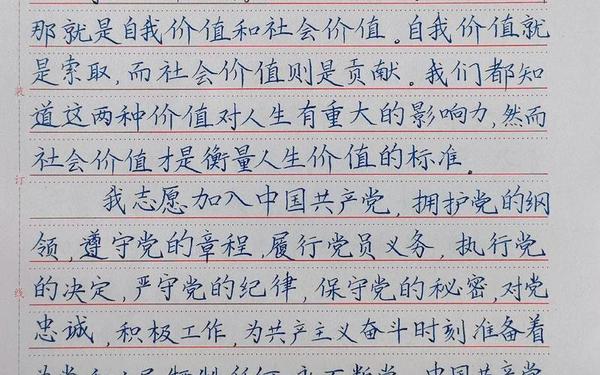 那就是自我价值和社会价值。自我价值就
是索取,而社会价值则是贡献。我们都知
道这两种价值对人生有重大的影响力,然而
社会价值才是衡量人生价值的标准。
我志愿加入中国共产党,拥护党的纲
领,遵守党的章程,履行党员义务,执行党
的决定,严守党的纪律,保守党的秘密,对党
忠诚,积极工作,为共产主义奋斗时刻准备着
中国共产党
装
订
线